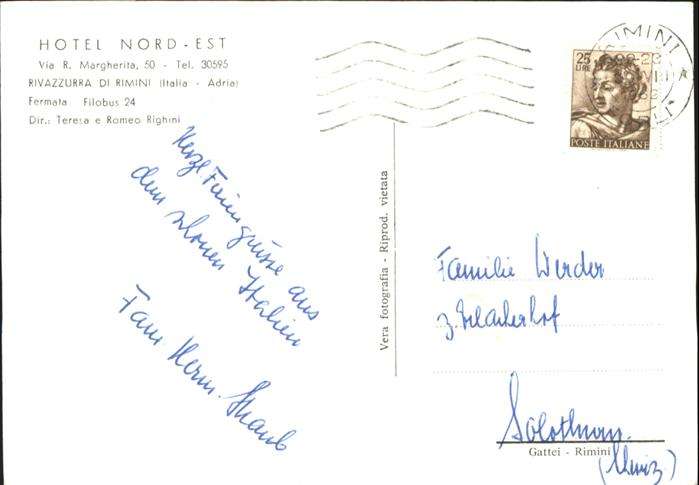 HOTEL NORD - EST
Via R. Margherita, 50 - Tel. 30595
RIVAZZURRA DI RIMINI (Italia - Adria)
Fermata Filobus 24
Dir.: Teresa e Romeo Righini
Herzl Feriengrüsse aus
dem schönen Italien
Fam Herm. Straub
Vera fotografia - Riprod. vietata
RIMINI
25
LIRE
POSTE ITALIANE
Familie Werder
z.
Solothurn
Gattei - Rimini
(Schweiz)